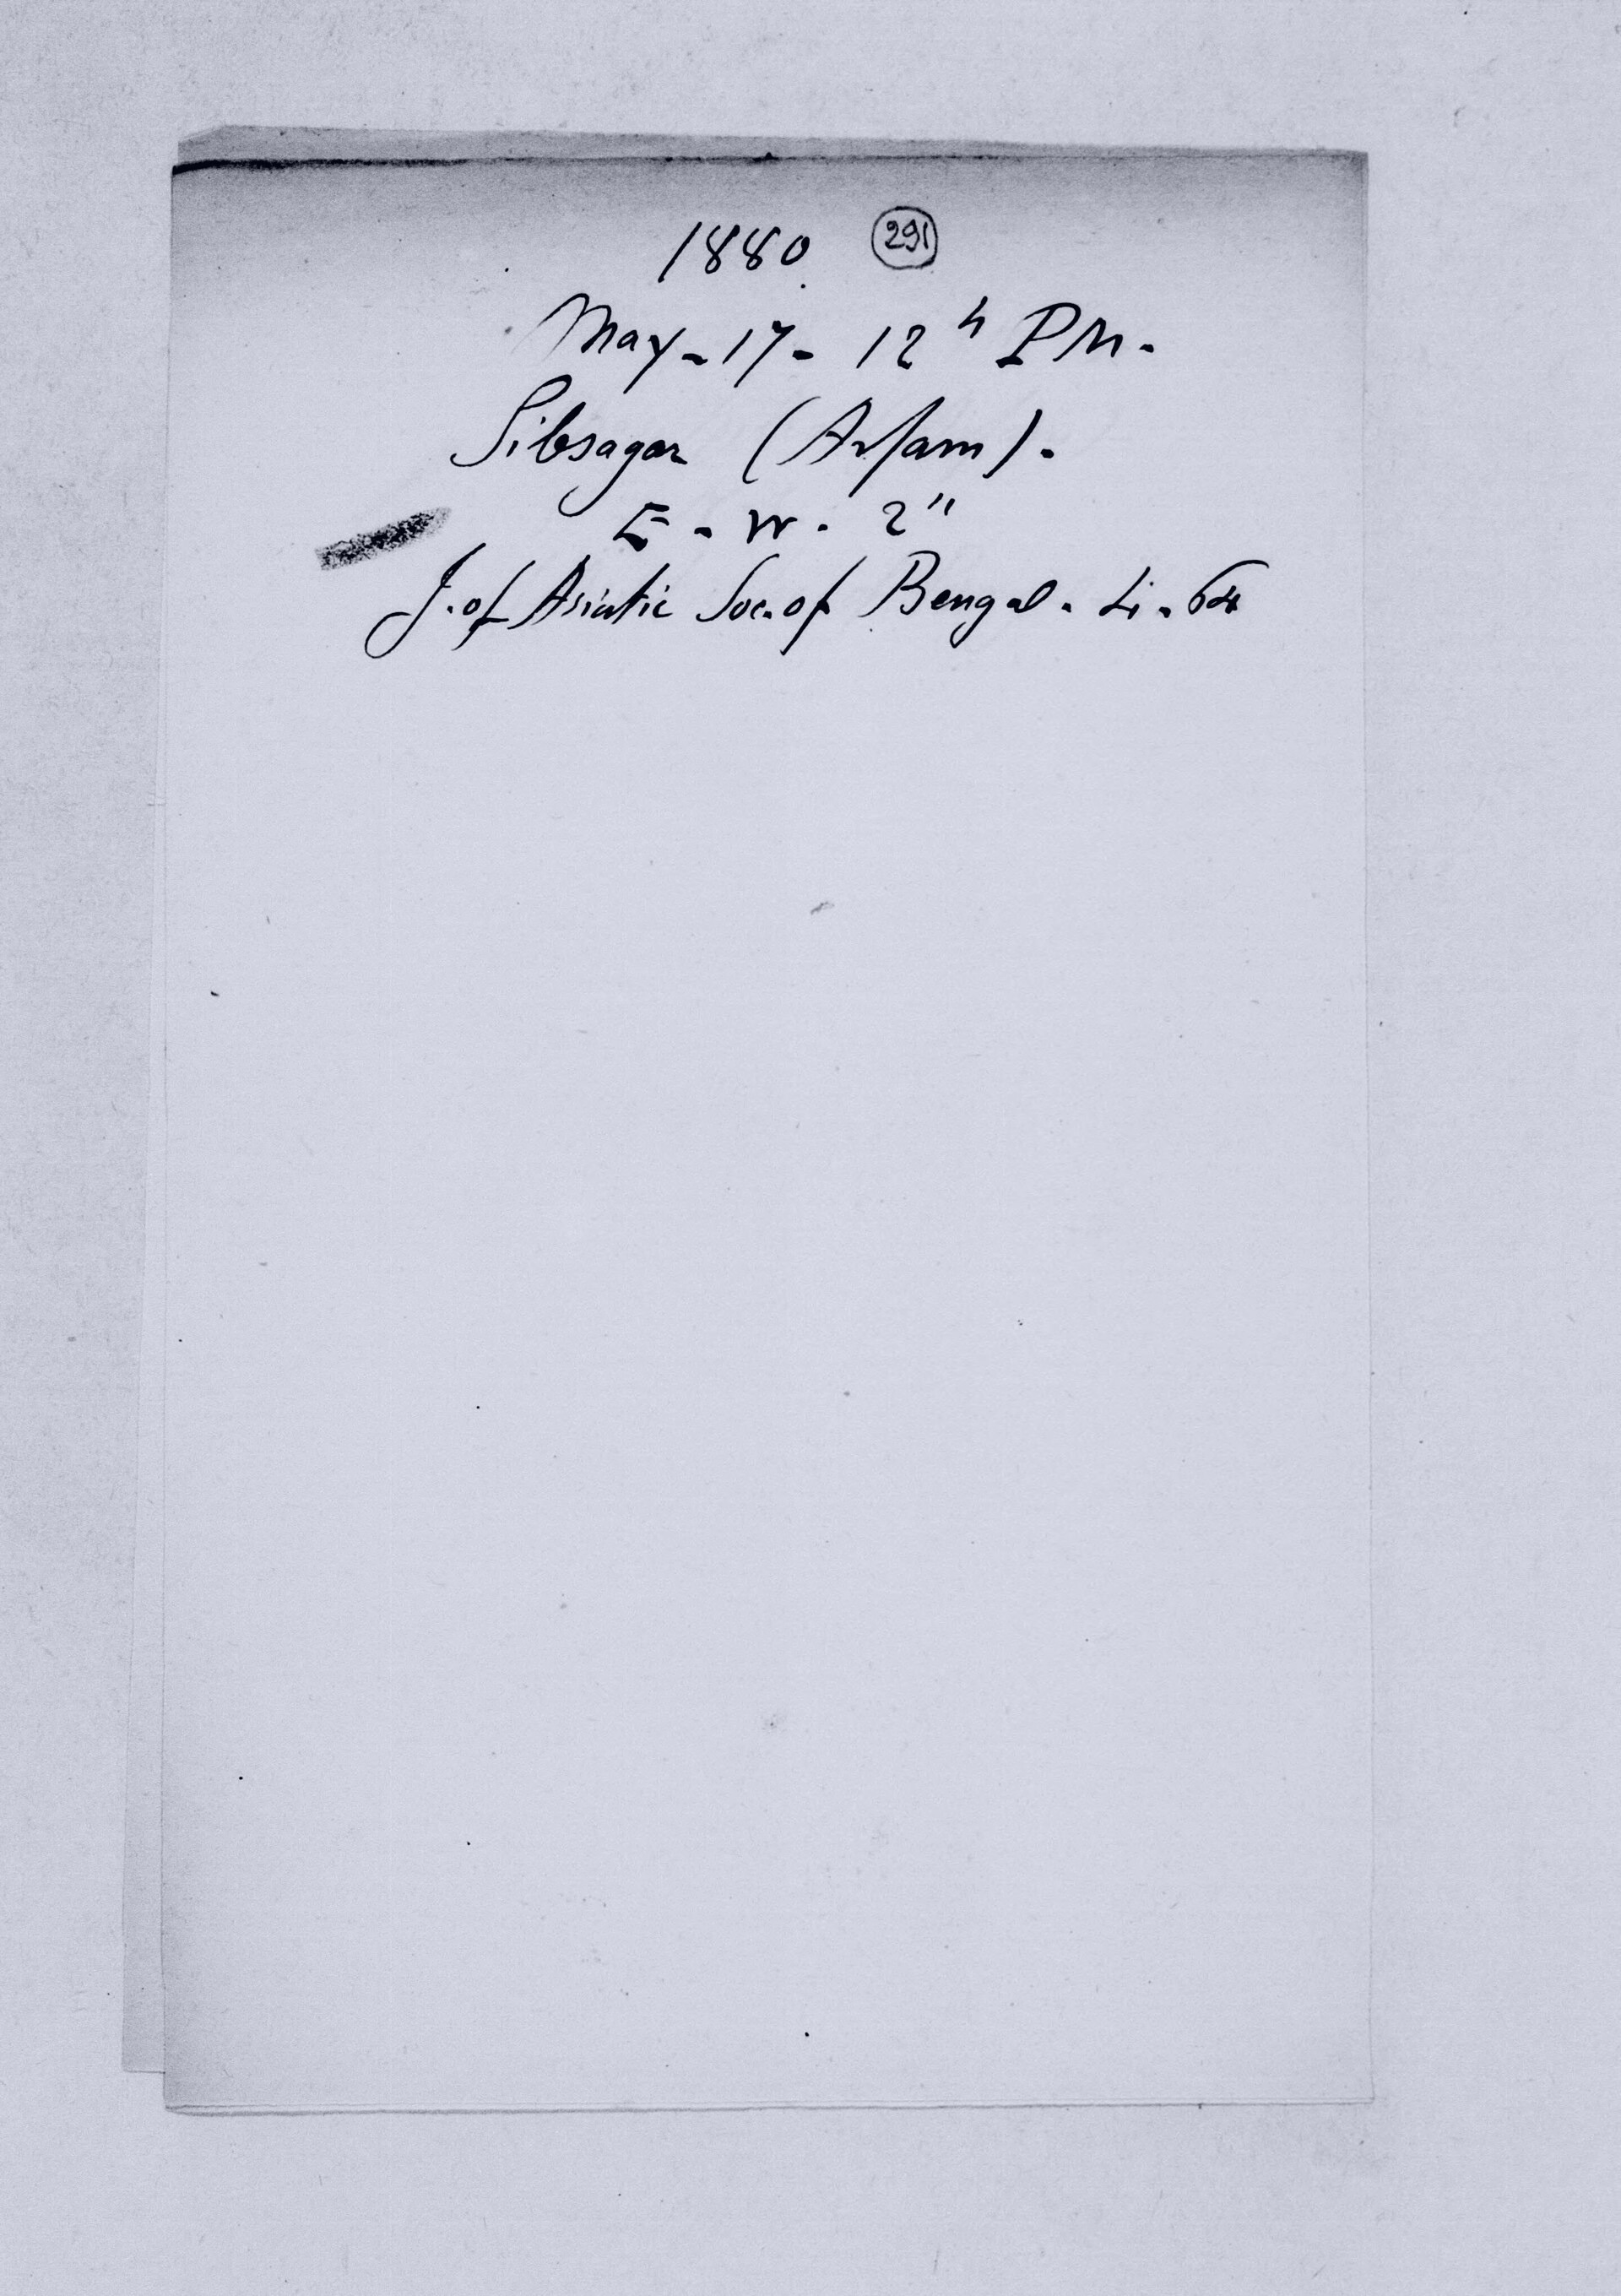 1880 291
May - 17 - 12h PM.
Sibsagar (Assam).
E - W. 2"
J. of Asiatic Soc. of Bengal. Li. 64